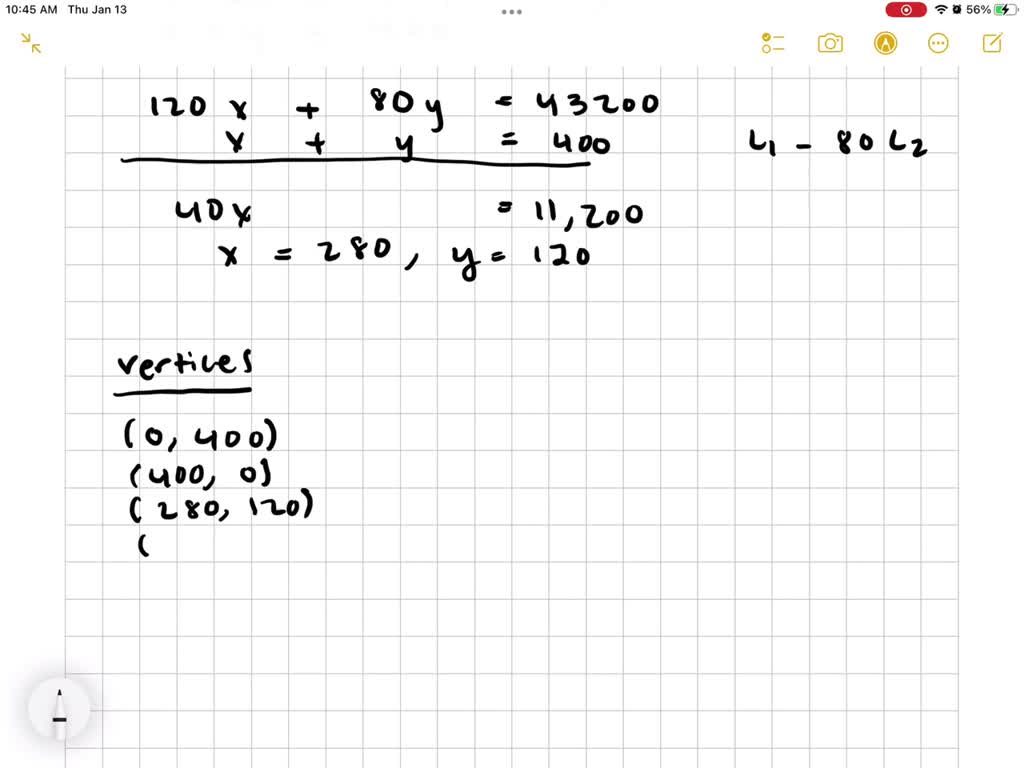 10:45 AM Thu Jan 13 56%
120x + 80y = 43200
x + y = 400 L1 - 80L2
40x = 11,200
x = 280, y = 120
vertices
(0, 400)
(400, 0)
(280, 120)
(